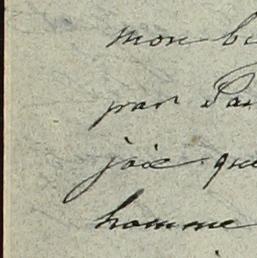 mon
par
joie que
homme